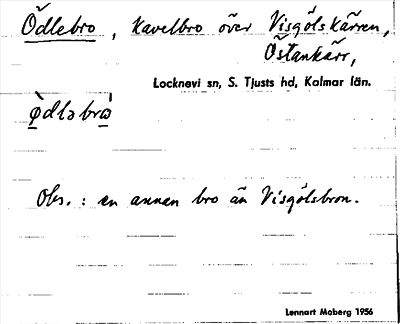 Ödlebro, Kavelbro över Visgölskärren,
Östankärr,
Locknevi sn, S. Tjusts hd, Kalmar län.
ø̀dləbrω
Obs. : en annan bro än Visgölsbron.
Lennart Moberg 1956